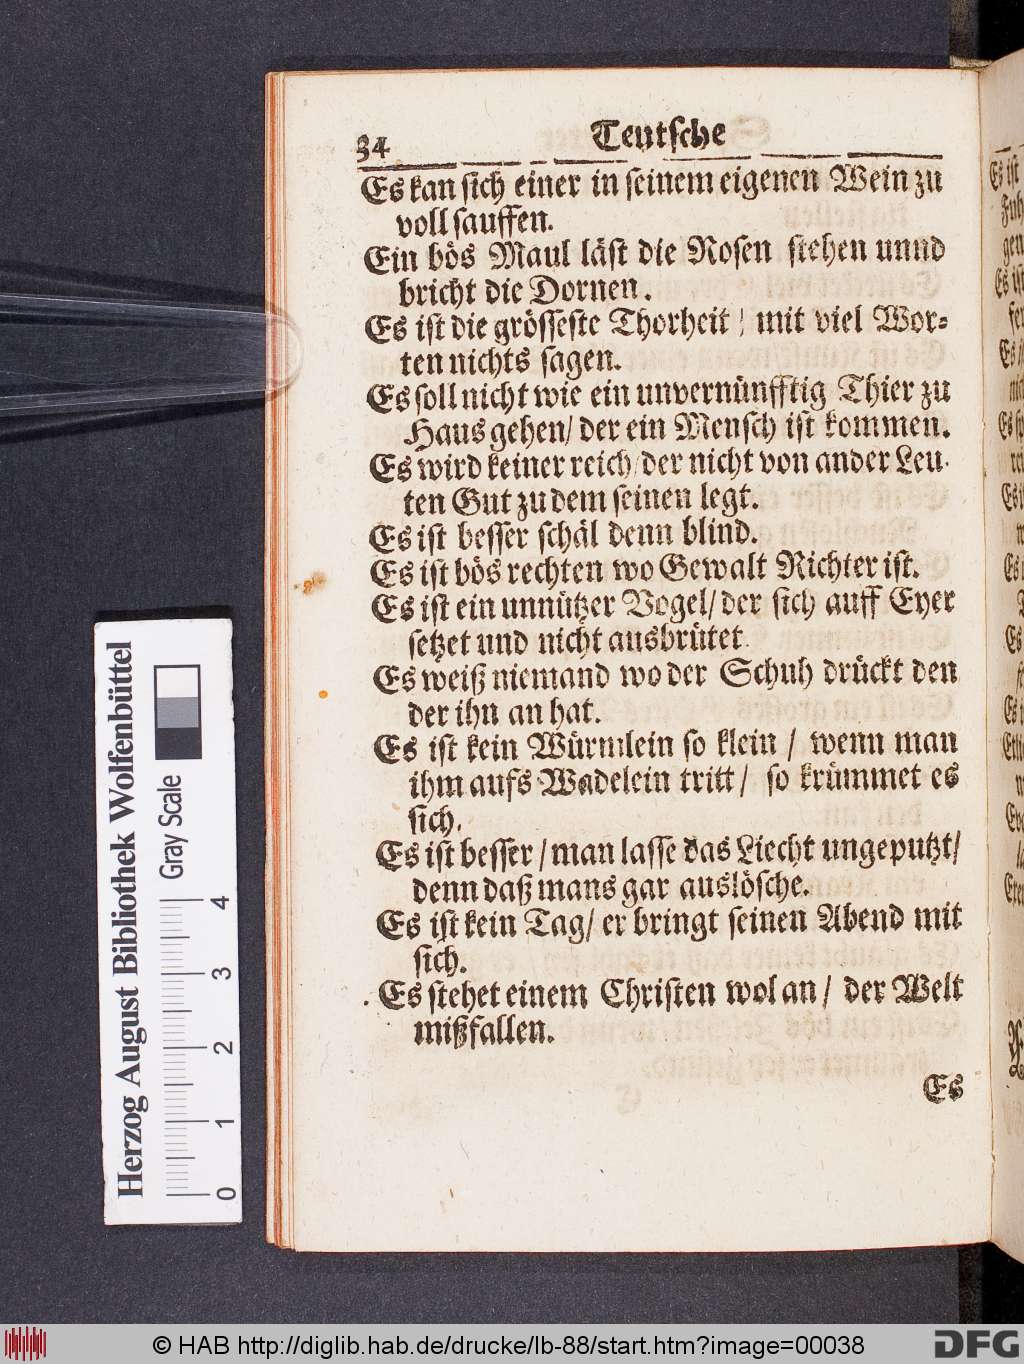 34 Teutsche
Es kan sich einer in seinem eigenen Wein zu
voll sauffen.
Ein bös Maul läst die Rosen stehen unnd
bricht die Dornen.
Es ist die grösseste Thorheit / mit viel Wor⸗
ten nichts sagen.
Es soll nicht wie ein unvernünfftig Thier zu
Haus gehen/ der ein Mensch ist kommen.
Es wird keiner reich/ der nicht von ander Leu⸗
ten Gut zu dem seinen legt.
Es ist besser schäl denn blind.
Es ist bös rechten wo Gewalt Richter ist.
Es ist ein unnützer Vogel/ der sich auff Eyer
setzet und nicht ausbrütet.
Es weiß niemand wo der Schuh drückt den
der ihn an hat.
Es ist kein Würmlein so klein / wenn man
ihm aufs Wadelein tritt / so krümmet es
sich.
Es ist besser / man lasse das Liecht ungeputzt/
denn daß mans gar auslösche.
Es ist kein Tag/ er bringt seinen Abend mit
sich.
Es stehet einem Christen wol an / der Welt
mißfallen.
Es
Herzog August Bibliothek Wolfenbüttel
Gray Scale
0 1 2 3 4
© HAB http://diglib.hab.de/drucke/lb-88/start.htm?image=00038
DFG